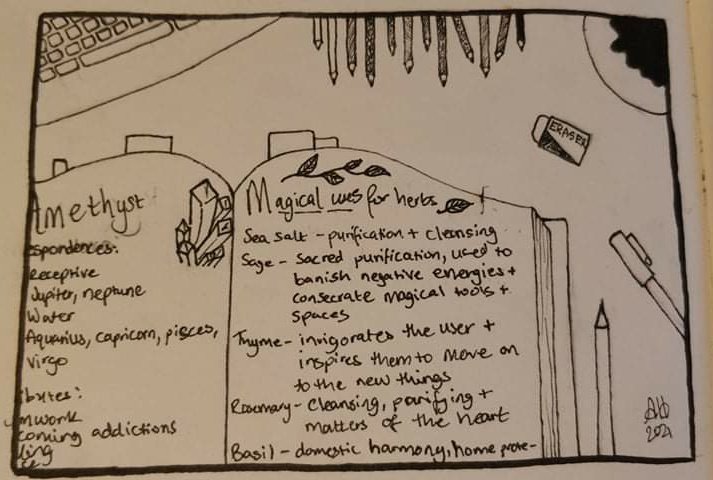 Amethyst
espondences:
Receptive
Jupiter, neptune
Water
Aquarius, capricorn, pisces,
Virgo
ibutes:
mwork
coming addictions
ling
Magical uses for herbs
Sea salt - purification + cleansing
Sage - sacred purification, used to
banish negative energies +
consecrate magical tools +
spaces
Thyme - invigorates the user +
inspires them to move on
to the new things
Rosemary - cleansing, purifying +
matters of the heart
Basil - domestic harmony, home prote-
ERASER
2021